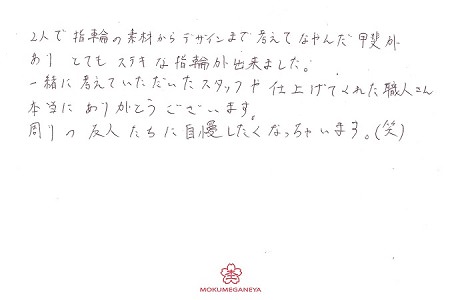 2人で指輪の素材からデザインまで考えてなやんだ甲斐が
あり とても ステキな指輪が出来ました。
一緒に考えていただいたスタッフや仕上げてくれた職人さん
本当にありがとうございます。
周りの友人たちに自慢したくなっちゃいます。(笑)
MOKUMEGANEYA